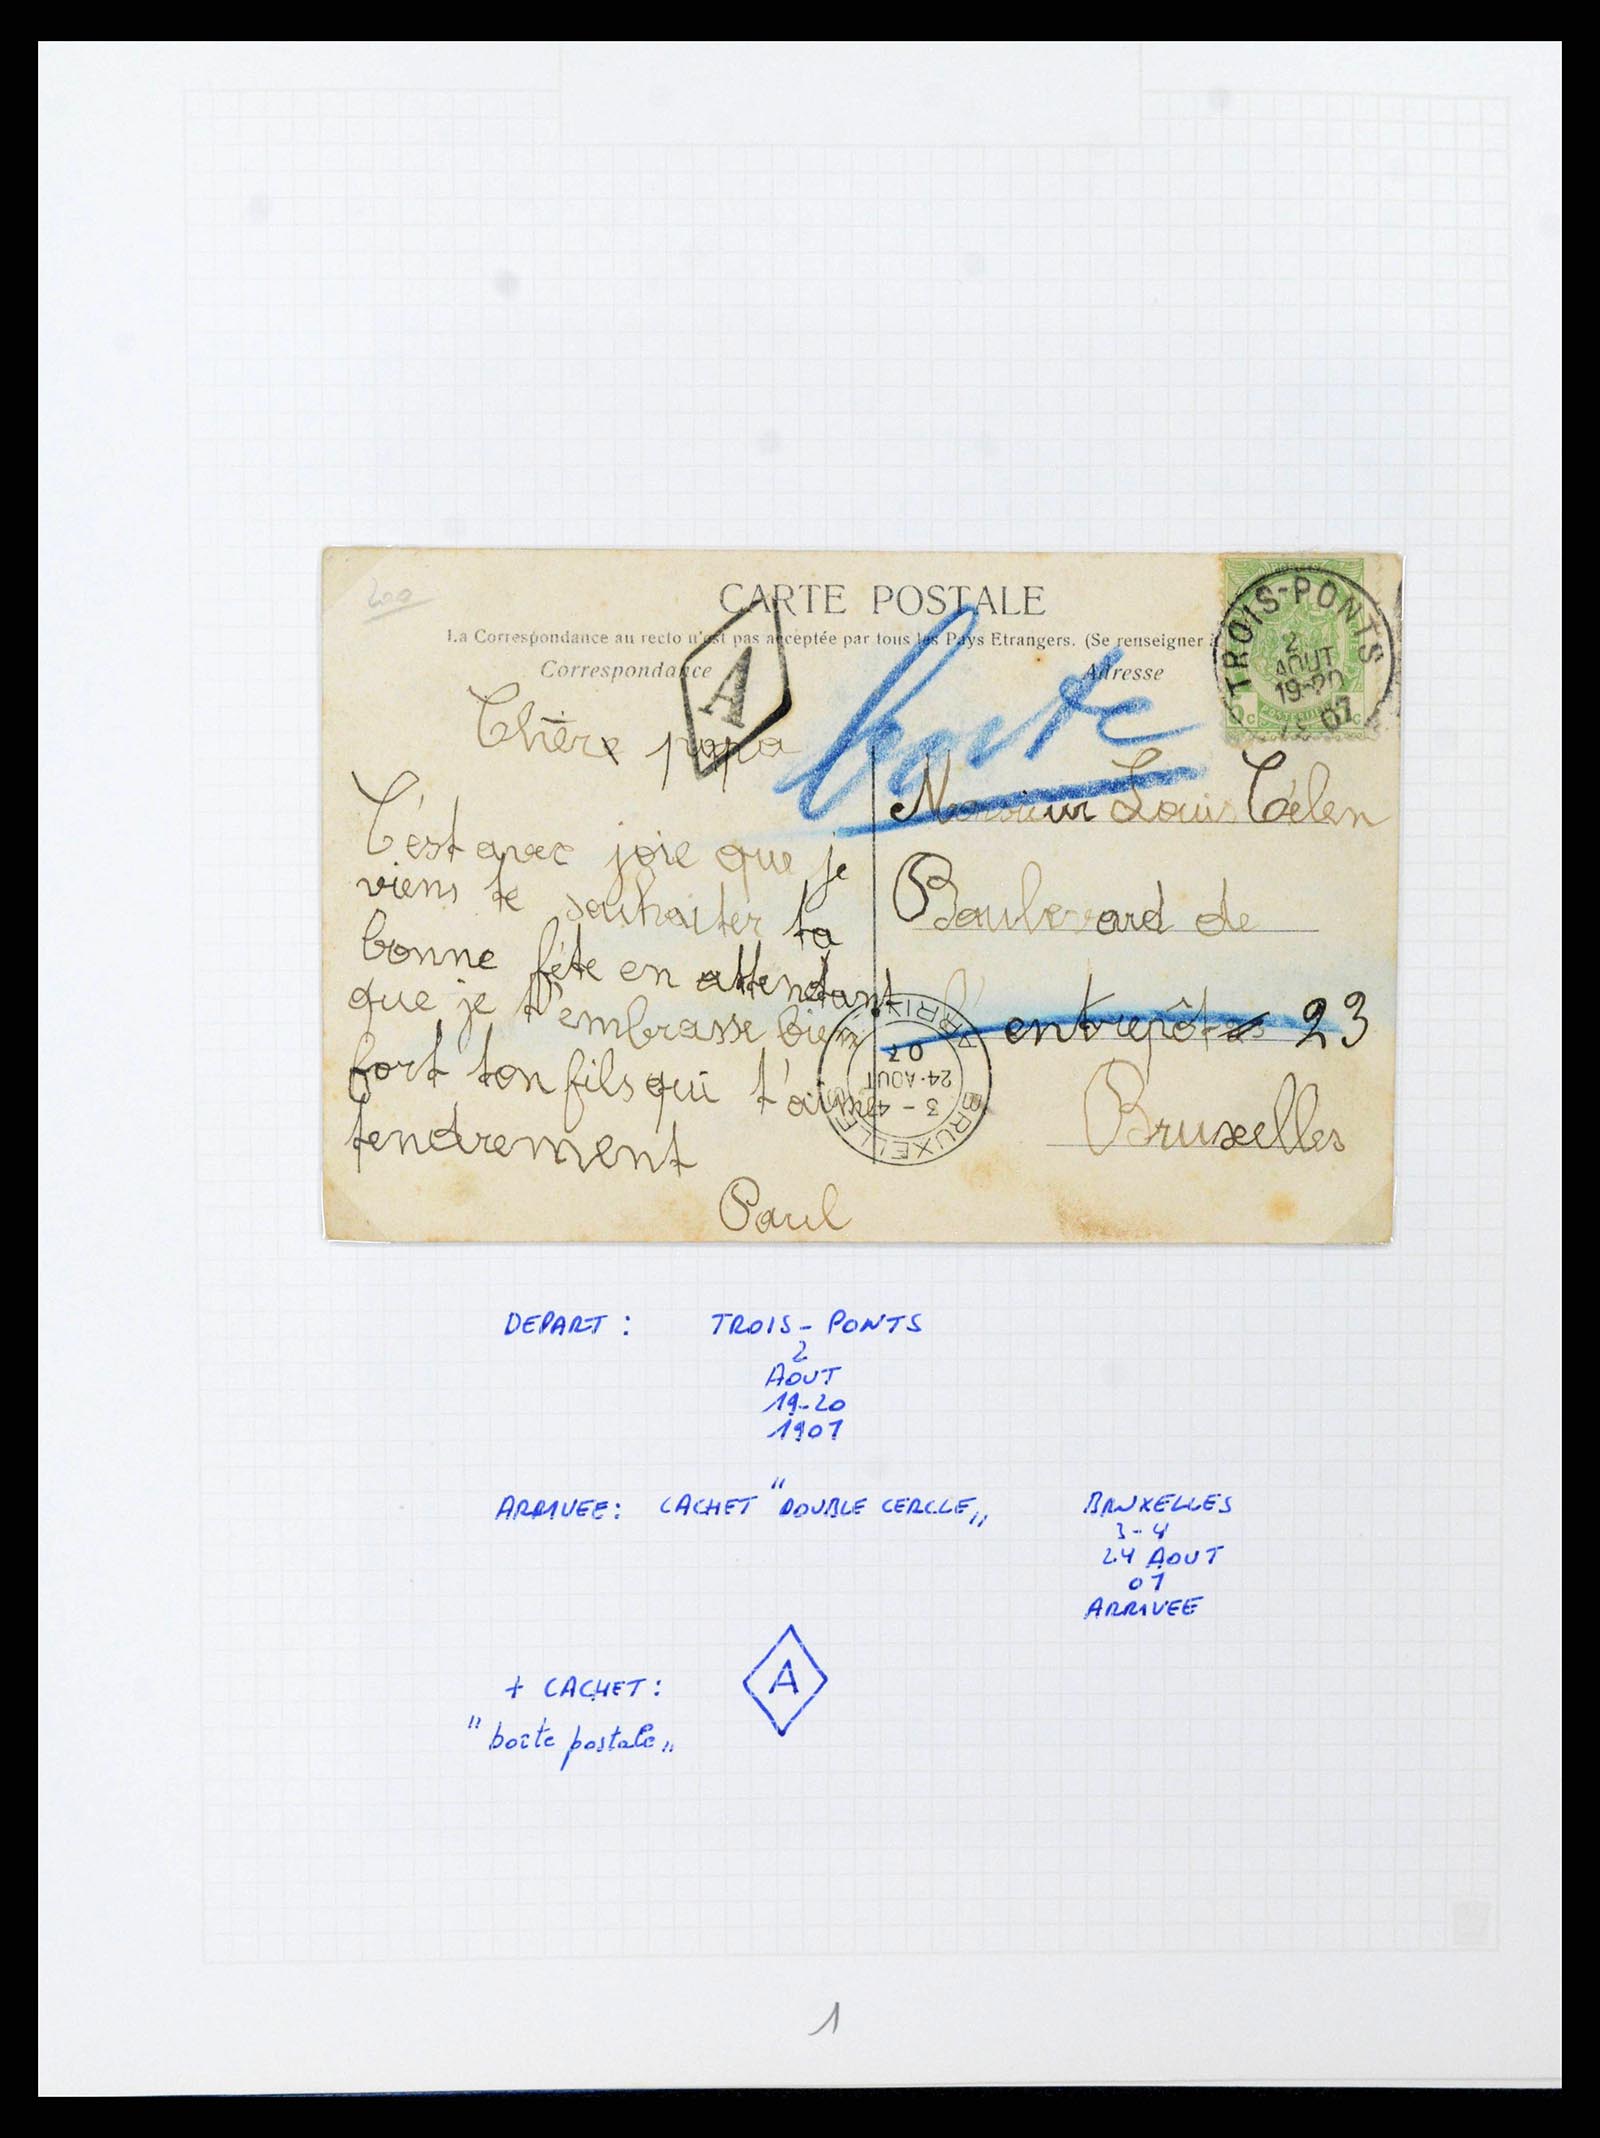 200
CARTE POSTALE
La Correspondance au recto n'est pas acceptée par tous les Pays Etrangers. (Se renseigner à
Correspondance
Adresse
A
TROIS-PONTS
2
AOUT
19-20
07
Chère papa
C'est avec joie que je
viens te souhaiter ta
bonne fête en attendant
que je t'embrasse bien
fort ton fils qui t'aime
tendrement
Paul
Monsieur Louis Célen
Boulevard de
l'entrepôt 23
Bruxelles
BRUXELLES
3 - 4
24 · AOUT
07
ARRIVEE
DEPART : TROIS - PONTS
2
AOUT
19-20
1907
ARRIVEE : CACHET "DOUBLE CERCLE„ BRUXELLES
3-4
24 AOUT
07
ARRIVEE
+ CACHET : A
"boîte postale„
1